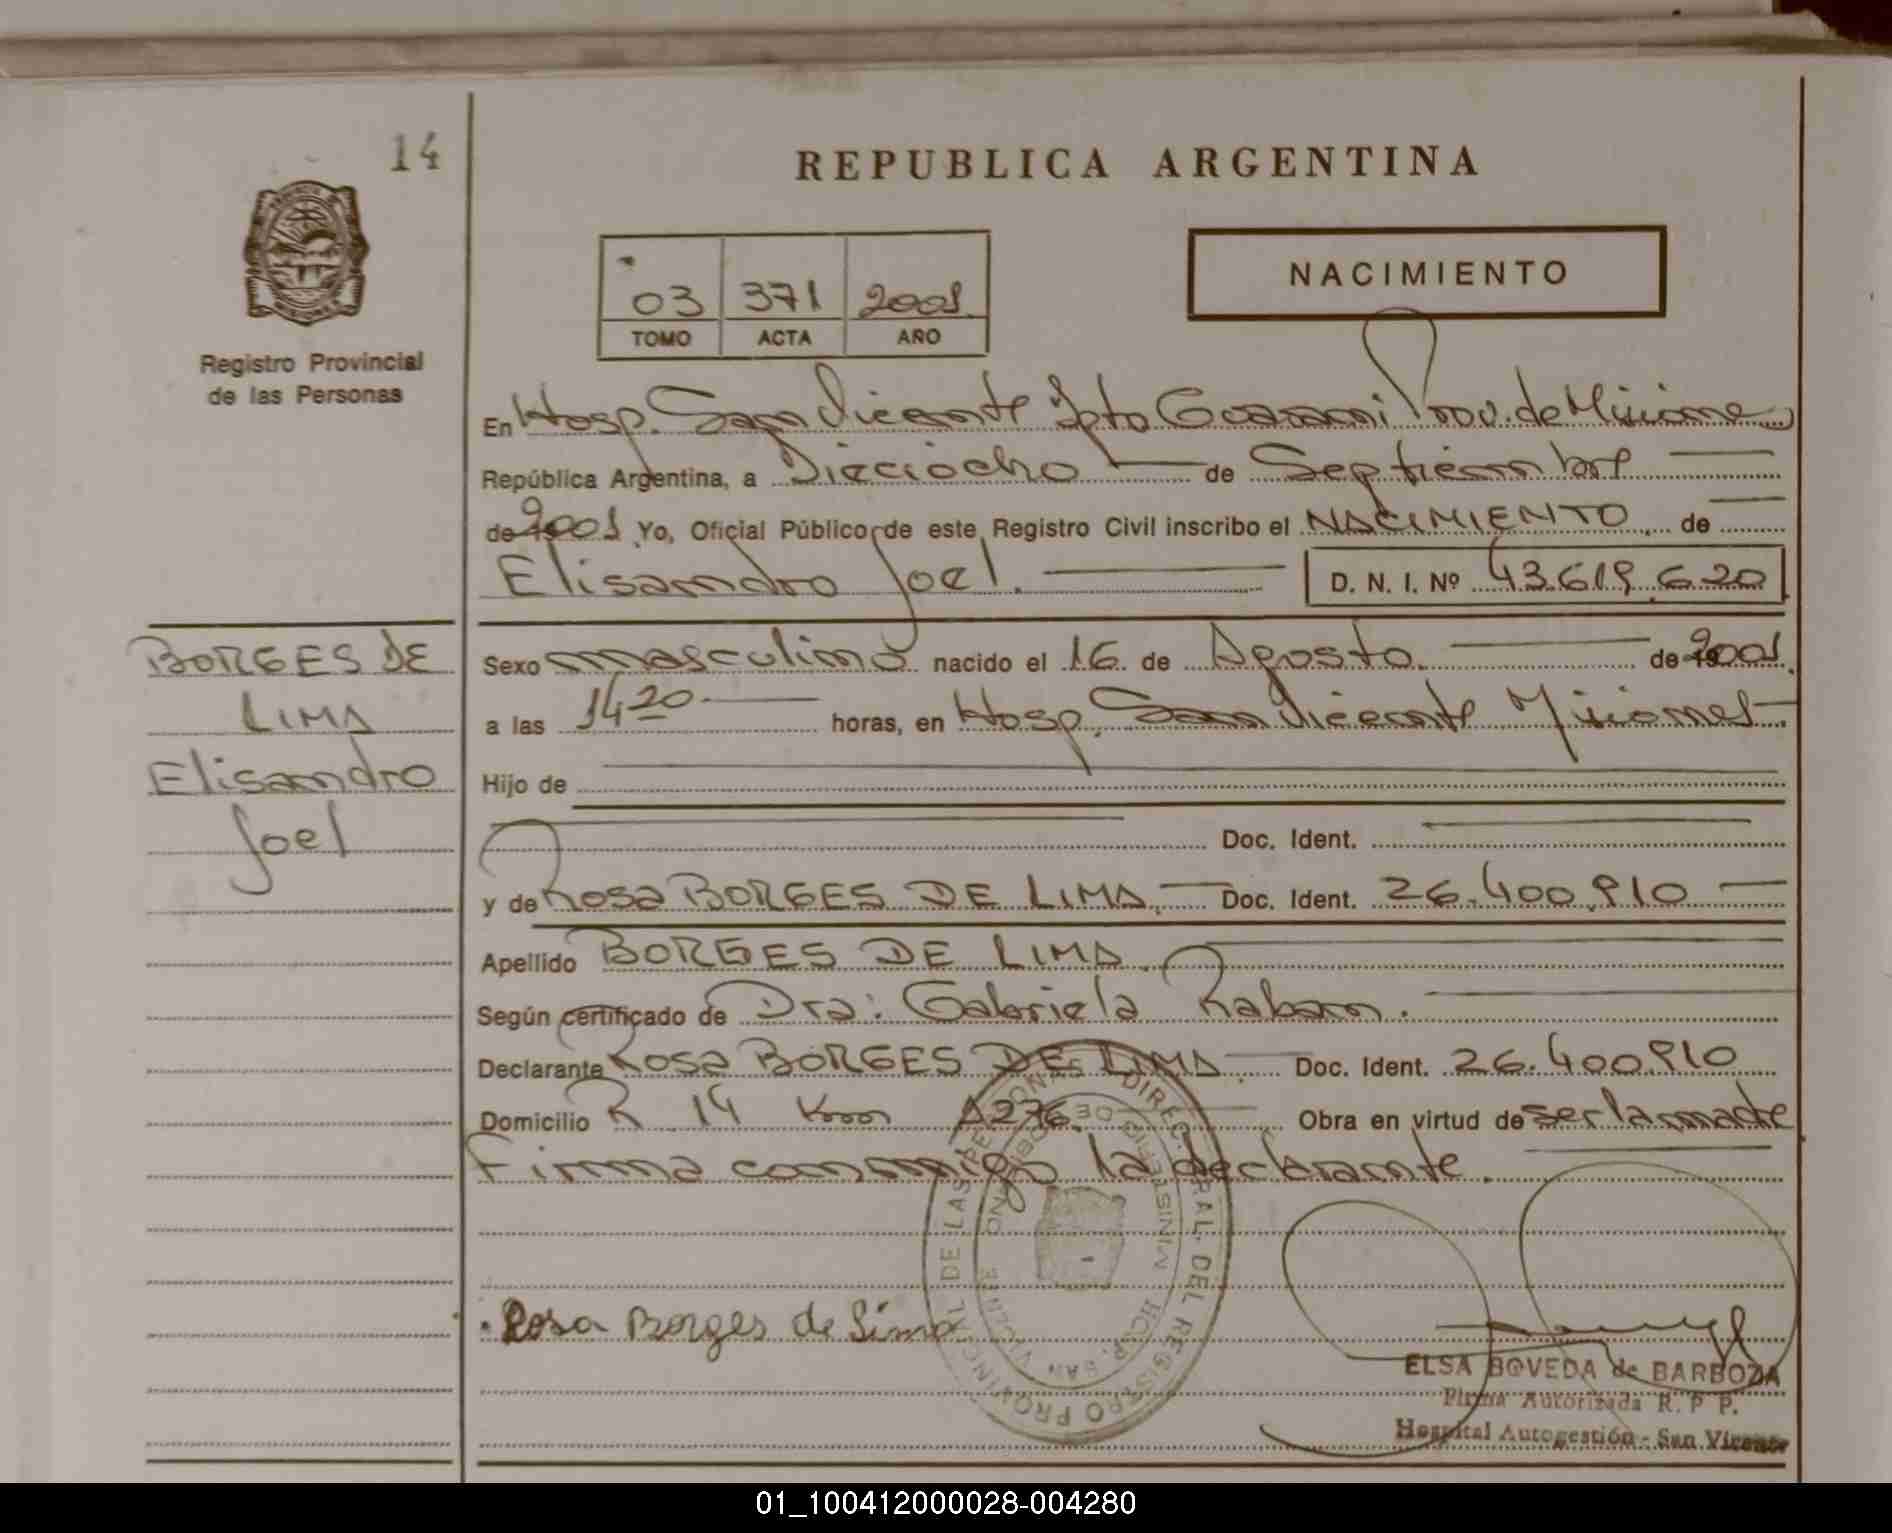 14
REPUBLICA ARGENTINA
NACIMIENTO
03 371 2001
TOMO ACTA AÑO
Registro Provincial
de las Personas
En Hosp. San Vicente Dpto Guarani Prov. de Misiones
República Argentina, a Dieciocho de Septiembre
de 2001 Yo, Oficial Público de este Registro Civil inscribo el NACIMIENTO de
Elisandro Joel. D. N. I. Nº 43.619.620
BORGES DE
LIMA
Elisandro
Joel
Sexo masculino nacido el 16 de Agosto de 2001
a las 14 20 horas, en Hosp. San Vicente Misiones
Hijo de
Doc. Ident.
y de Rosa BORGES DE LIMA. Doc. Ident. 26.400.910
Apellido BORGES DE LIMA.
Según certificado de Dra: Gabriela Raban.
Declarante Rosa BORGES DE LIMA. Doc. Ident. 26.400.910
Domicilio R 14 Km 1276. Obra en virtud de ser la madre
Firma conmigo la declarante.
Rosa Borges de Lima
DIREC. GRAL. DEL REGISTRO PROVINCIAL DE LAS PERSONAS
MINISTERIO DE GOBIERNO
HOSP. SAN VICENTE
ELSA BOVEDA de BARBOZA
Firma Autorizada R. P P.
Hospital Autogestión - San Vicente
01_100412000028-004280